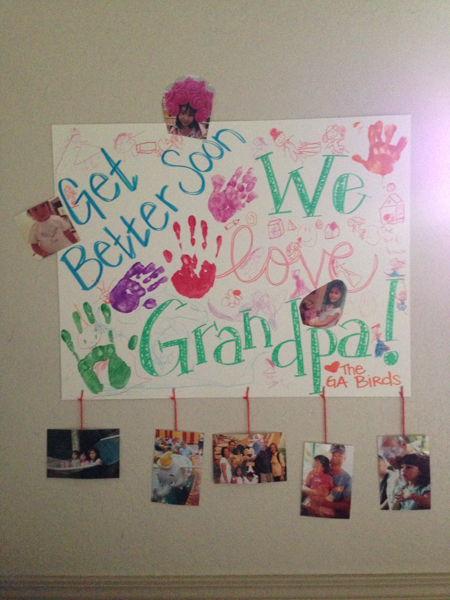 Get
Better Soon
We
love
Grandpa!
The
GA BIRDS